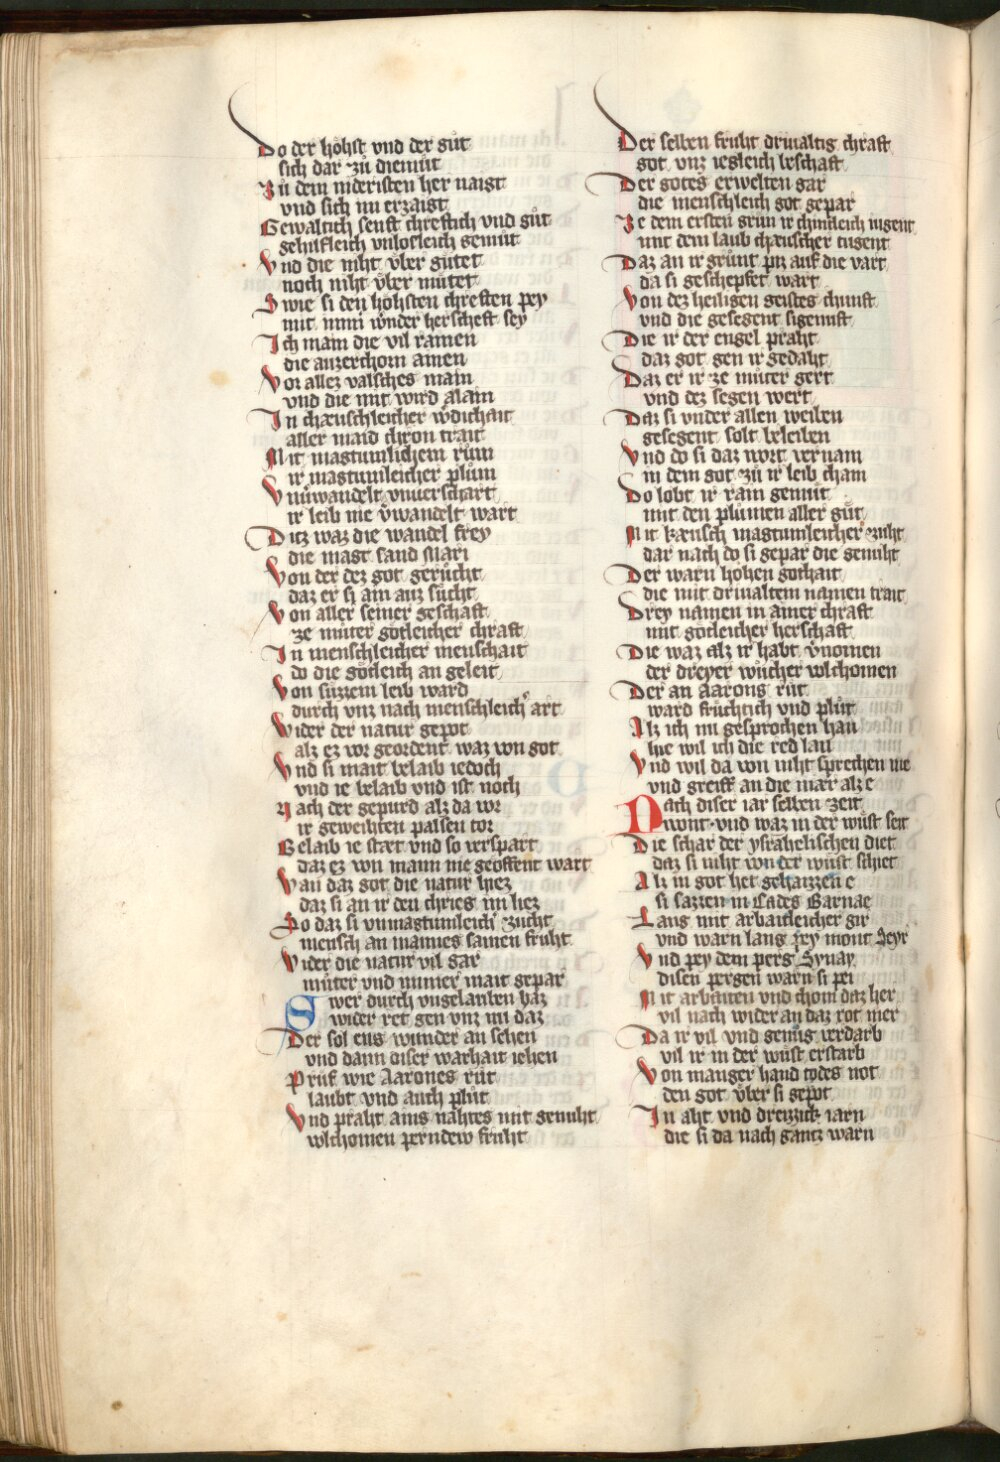 Do der hohst vnd der gůt
sich dar zů diemůt
Zů dem nideristen her naigt
vnd sich nu erzaigt
Gewaltich senft chreftich vnd gůt
gehilfleich vnlosleich gemůt
Vnd die niht vber gůtet
noch niht vber můtet
Swie si den hohsten chreften pey
mit wunder herscheft sey
Ich main die vil rainen
die auzerchorn ainen
Vor allez valsches main
vnd die mit wird alain
In chæuschleicher wͦdichait
aller maid chron trait
Mit magtumlichem rům
ir magtumleicher plům
Vnuͦwandelt vnuerschart
ir leib nie vͦwandelt wart
Ditz waz die wandel frey
die magt sand Mari
Von der dez got gerůcht
daz er si ain auz sůcht
Von aller seiner geschaft
ze můter gotleicher chraft
In menschleicher menschait
do die gotleich an geleit
Von sůzzem leib ward
durch vnz nach menschleicher art
Wider der natur gepot
alz ez vor geordent waz von got
Vnd si mait belaib iedoch
vnd ie belaib vnd ist noch
Nach der gepurd alz da vor
ir geweihten paisen tor
Belaib ie stæt vnd so verspart
daz ez von mann nie geoffent wart
Wan daz got die natur hiez
daz si an ir den chrieg im liez
So daz si vnmagtumleicher zucht
mensch an mannes samen fruht
Wider die natur vil gar
můter vnd immer mait gepar
Swer durch vngelauben haz
wider ret gen vnz nu daz
Der sol ens wunder an sehen
vnd dann diser warhait iehen
Průf wie Aarones růt
laubt vnd auch plůt
Vnd praht ains nahtes mit genuht
volchomen perndew fruht
Der selben fruht driualtig chraft
got vnz iegleich beschaft
Der gotes erwelten gar
die menschleich got gepar
Ze dem ersten grůn ir chintleich iugent
mit dem laub chæuscher tugent
Daz an ir grůnt piz auf die vart
da si geschepfet wart
Von dez heiligen geistes chunst
vnd die gesegent sigenuft
Die ir der engel praht
daz got gen ir gedaht
Daz er ir ze můter gert
vnd dez segen wert
Daz si vnder allen weiben
gesegent solt beleiben
Vnd do si daz wort vernam
in dem got zů ir leib cham
Do lobt ir rain gemůt
mit den plůmen aller gůt
Mit kæusch magtumleicher zuht
dar nach do si gepar die genuht
Der warn hohen gothait
die mit driualtem namen trait
Drey namen in ainer chraft
mit gotleicher herschaft
Die waz alz ir habt vͦnomen
der dreyer wůcher volchomen
Der an Aarons růt
ward fruchtich vnd plůt
Alz ich nu gesprochen han
hie wil ich die red lan
Vnd wil da von niht sprechen me
vnd greiff an die mær alz e
Nach diser iar selben zeit
wont vnd waz in der wůst seit
Die schar der ysrahelischen diet
daz si niht von der wůst schiet
Alz in got het gehaizzen e
si sazzen in Cades Barnae
Lang mit arbaitleicher gir
vnd warn lang pey mont Seyr
Vnd pey dem perg Synay
disen pergen warn si pei
Mit arbaiten vnd chom daz her
vil nach wider an daz rot mer
Da ir vil vnd genůg verdarb
vil ir in der wůst erstarb
Von manger hand todes not
den got vber si gepot
In aht vnd dreizzick iarn
die si da nach gantz warn